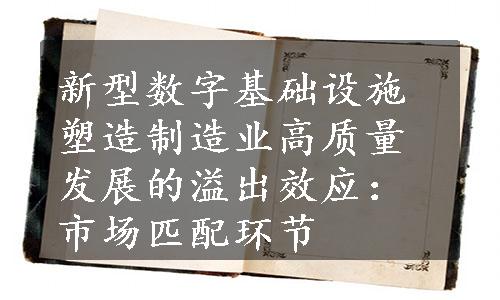 新型数字基础设施
塑造制造业高质量
发展的溢出效应：
市场匹配环节